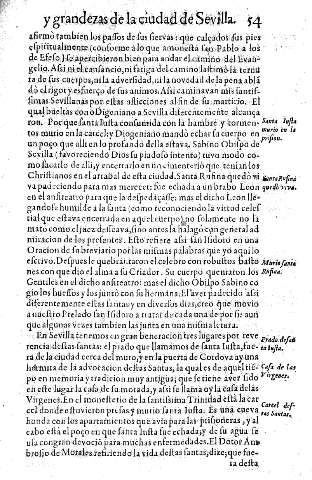 y grandezas de la ciudad de Sevilla. 54
afirmò tambien los passos de sus siervas: que calçados sus pies
espiritualmente (conforme a lo que amonesta san Pablo a los
de Efeso) se apercibieron bien para andar el camino del Evan-
gelio. Assi ni el cansancio, ni fatiga del camino lastimò la ternu
ra de sus cuerpos, ni la adversidad, ni la novedad de la pena ablã
dò el rigor y esfuerço de sus animos. Assi caminavan mis santis-
simas Sevillanas por estas aflicciones al fin de su martirio. El
qual bueltas con Diogeniano a Sevilla diferentemente alcança-
ron. Porque santa Iusta consumida con la hambre y tormentos
murio en la carcel; y Diogeniano mandò echar su cuerpo en
un poço que alli en lo profundo della estava. Sabino Obispo de
Sevilla (favoreciendo Dios su piadoso intento) tuvo modo co-
mo sacarlo de alli, y enterrarlo en un cimenterio que tenian los
Christianos en el arrabal de esta ciudad. Santa Rufina quedò vi
va padeciendo para mas merecer: fue echada a un brabo Leon
en el anfiteatro para que la despedaçasse: mas el dicho Leon lle-
gandose humilde a la santa (como reconociendo la virtud celes-
tial que estava encerrada en aquel cuerpo) no solamente no la
mato como el juez desseava, sino antes la halagò con general ad
miracion de los presentes. Esto refiere assi san Isidoro en una
Oracion de su breviario por las mismas palabras que yo aqui lo
escrivo. Despues le quebrantaron el celebro con robustos basto
nes con que diò el alma a su Criador. Su cuerpo quemaron los
Gentiles en el dicho anfiteatro: mas el dicho Obispo Sabino co
gio los huessos y los juntò con su hermana. El aver padecido assi
diferentemente estas santas y en diversos dias, creo que moviò
a nuestro Prelado san Isidoro a tratar de cada una de por si: aun
que algunas vezes tambien las junta en una misma letura.
En Sevilla tenemos en gran beneracion tres lugares por reve
rencia destas santas: el prado que llamamos de santa Iusta, fue-
ra de la ciudad cerca del muro, y en la puerta de Cordova ay una
hermita de la advocacion destas Santas, la qual es de aquel tiẽ-
po en memoria y tradicion muy antigua; que se tiene aver sido
en este lugar la casa de su morada, y assi se llama oy la casa de las
Virgenes. En el monesterio de la santissima Trinidad està la car
cel donde estuvieron presas y murio santa Iusta. Es una cueva
honda con los apartamentos que avia para las prisioneras, y al
cabo està el poço en que santa Iusta fue echada; y de su agua se
usa con gran devociõ para muchas enfermedades. El Dotor Am
brosio de Morales refiriendo la vida destas santas, dize; que fue
ra desta
Santa Iusta
murio en la
prision.
Santa Rufina
quedò viva.
Murio santa
Rufina.
Prado de san
ta Iusta.
Casa de las
Virgenes.
Carcel des-
tas Santas.